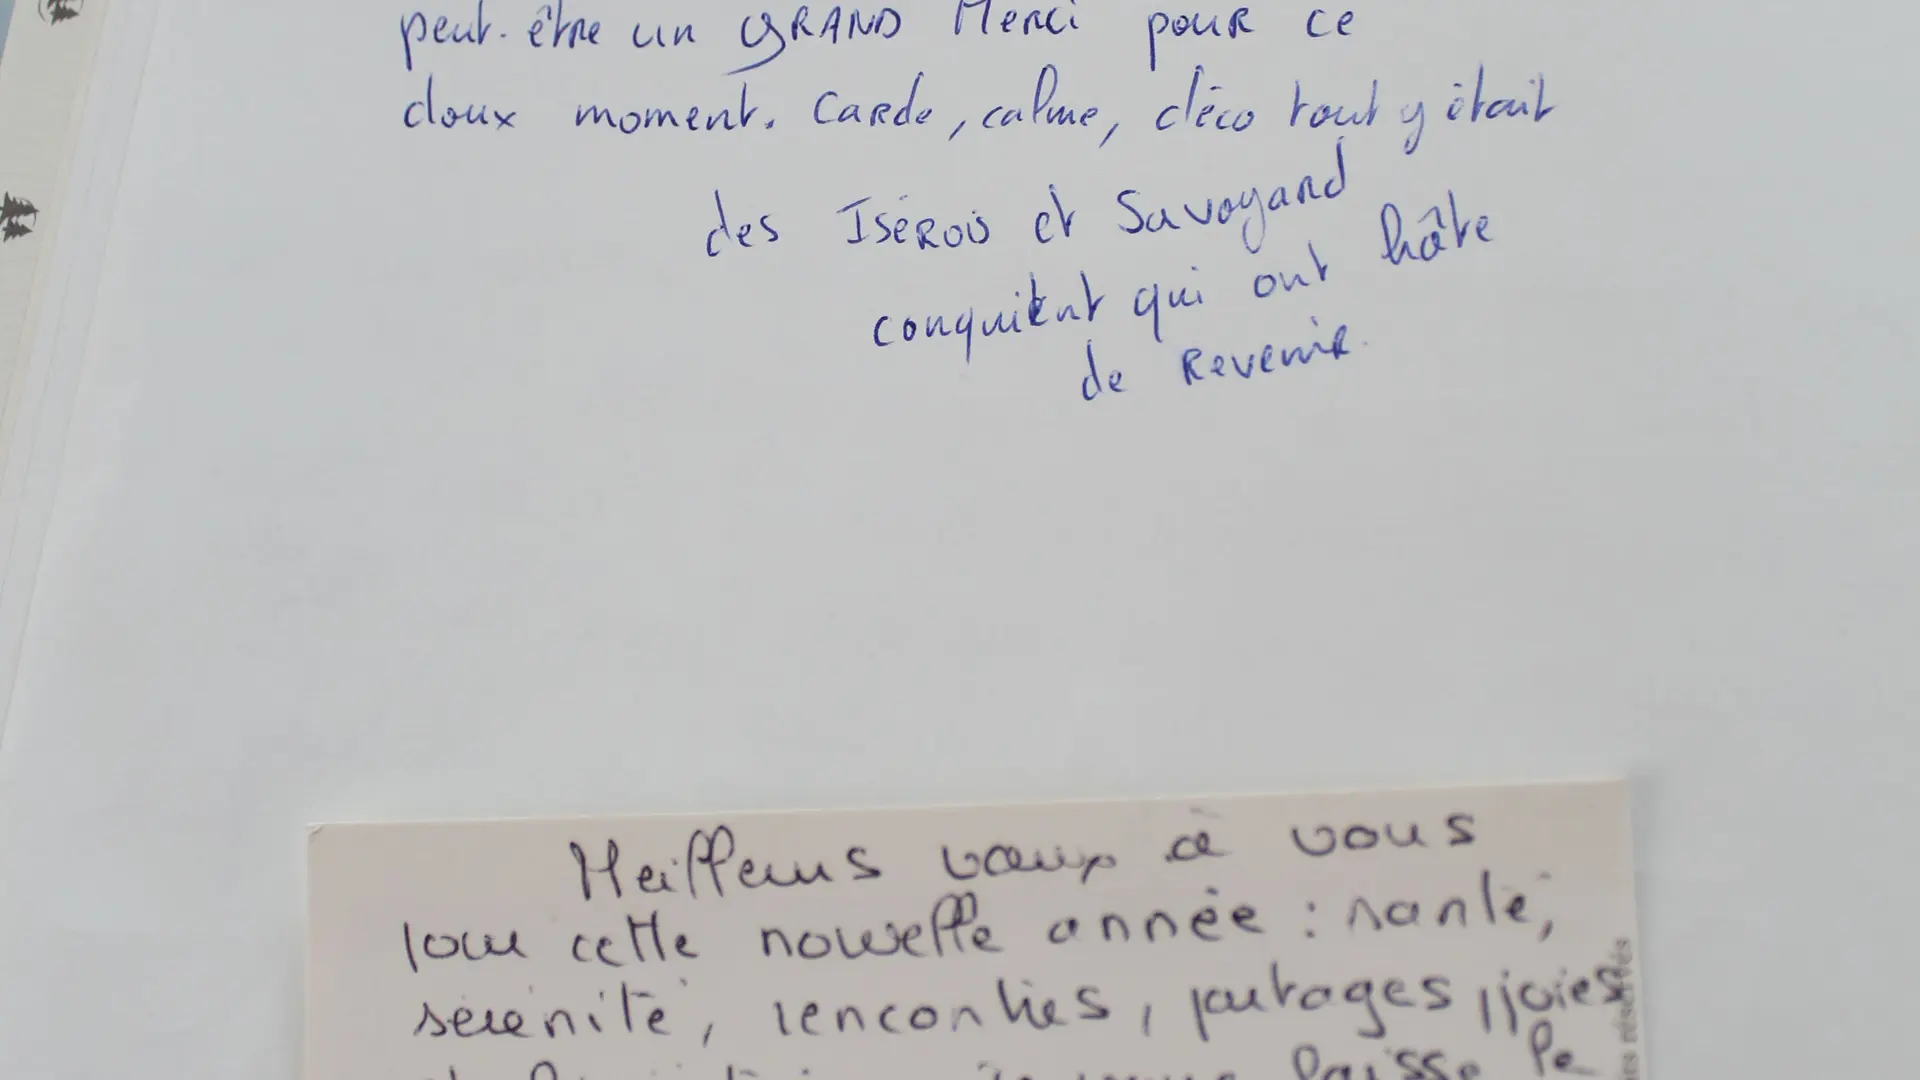 peut-être un GRAND Merci pour ce
doux moment. Cadre, calme, déco tout y était
des Isérois et Savoyard
conquient qui ont hâte
de Revenir.
Meilleurs vœux à vous
pour cette nouvelle année : santé,
sérénité, rencontres, partages, joies
laisse le
es réservés